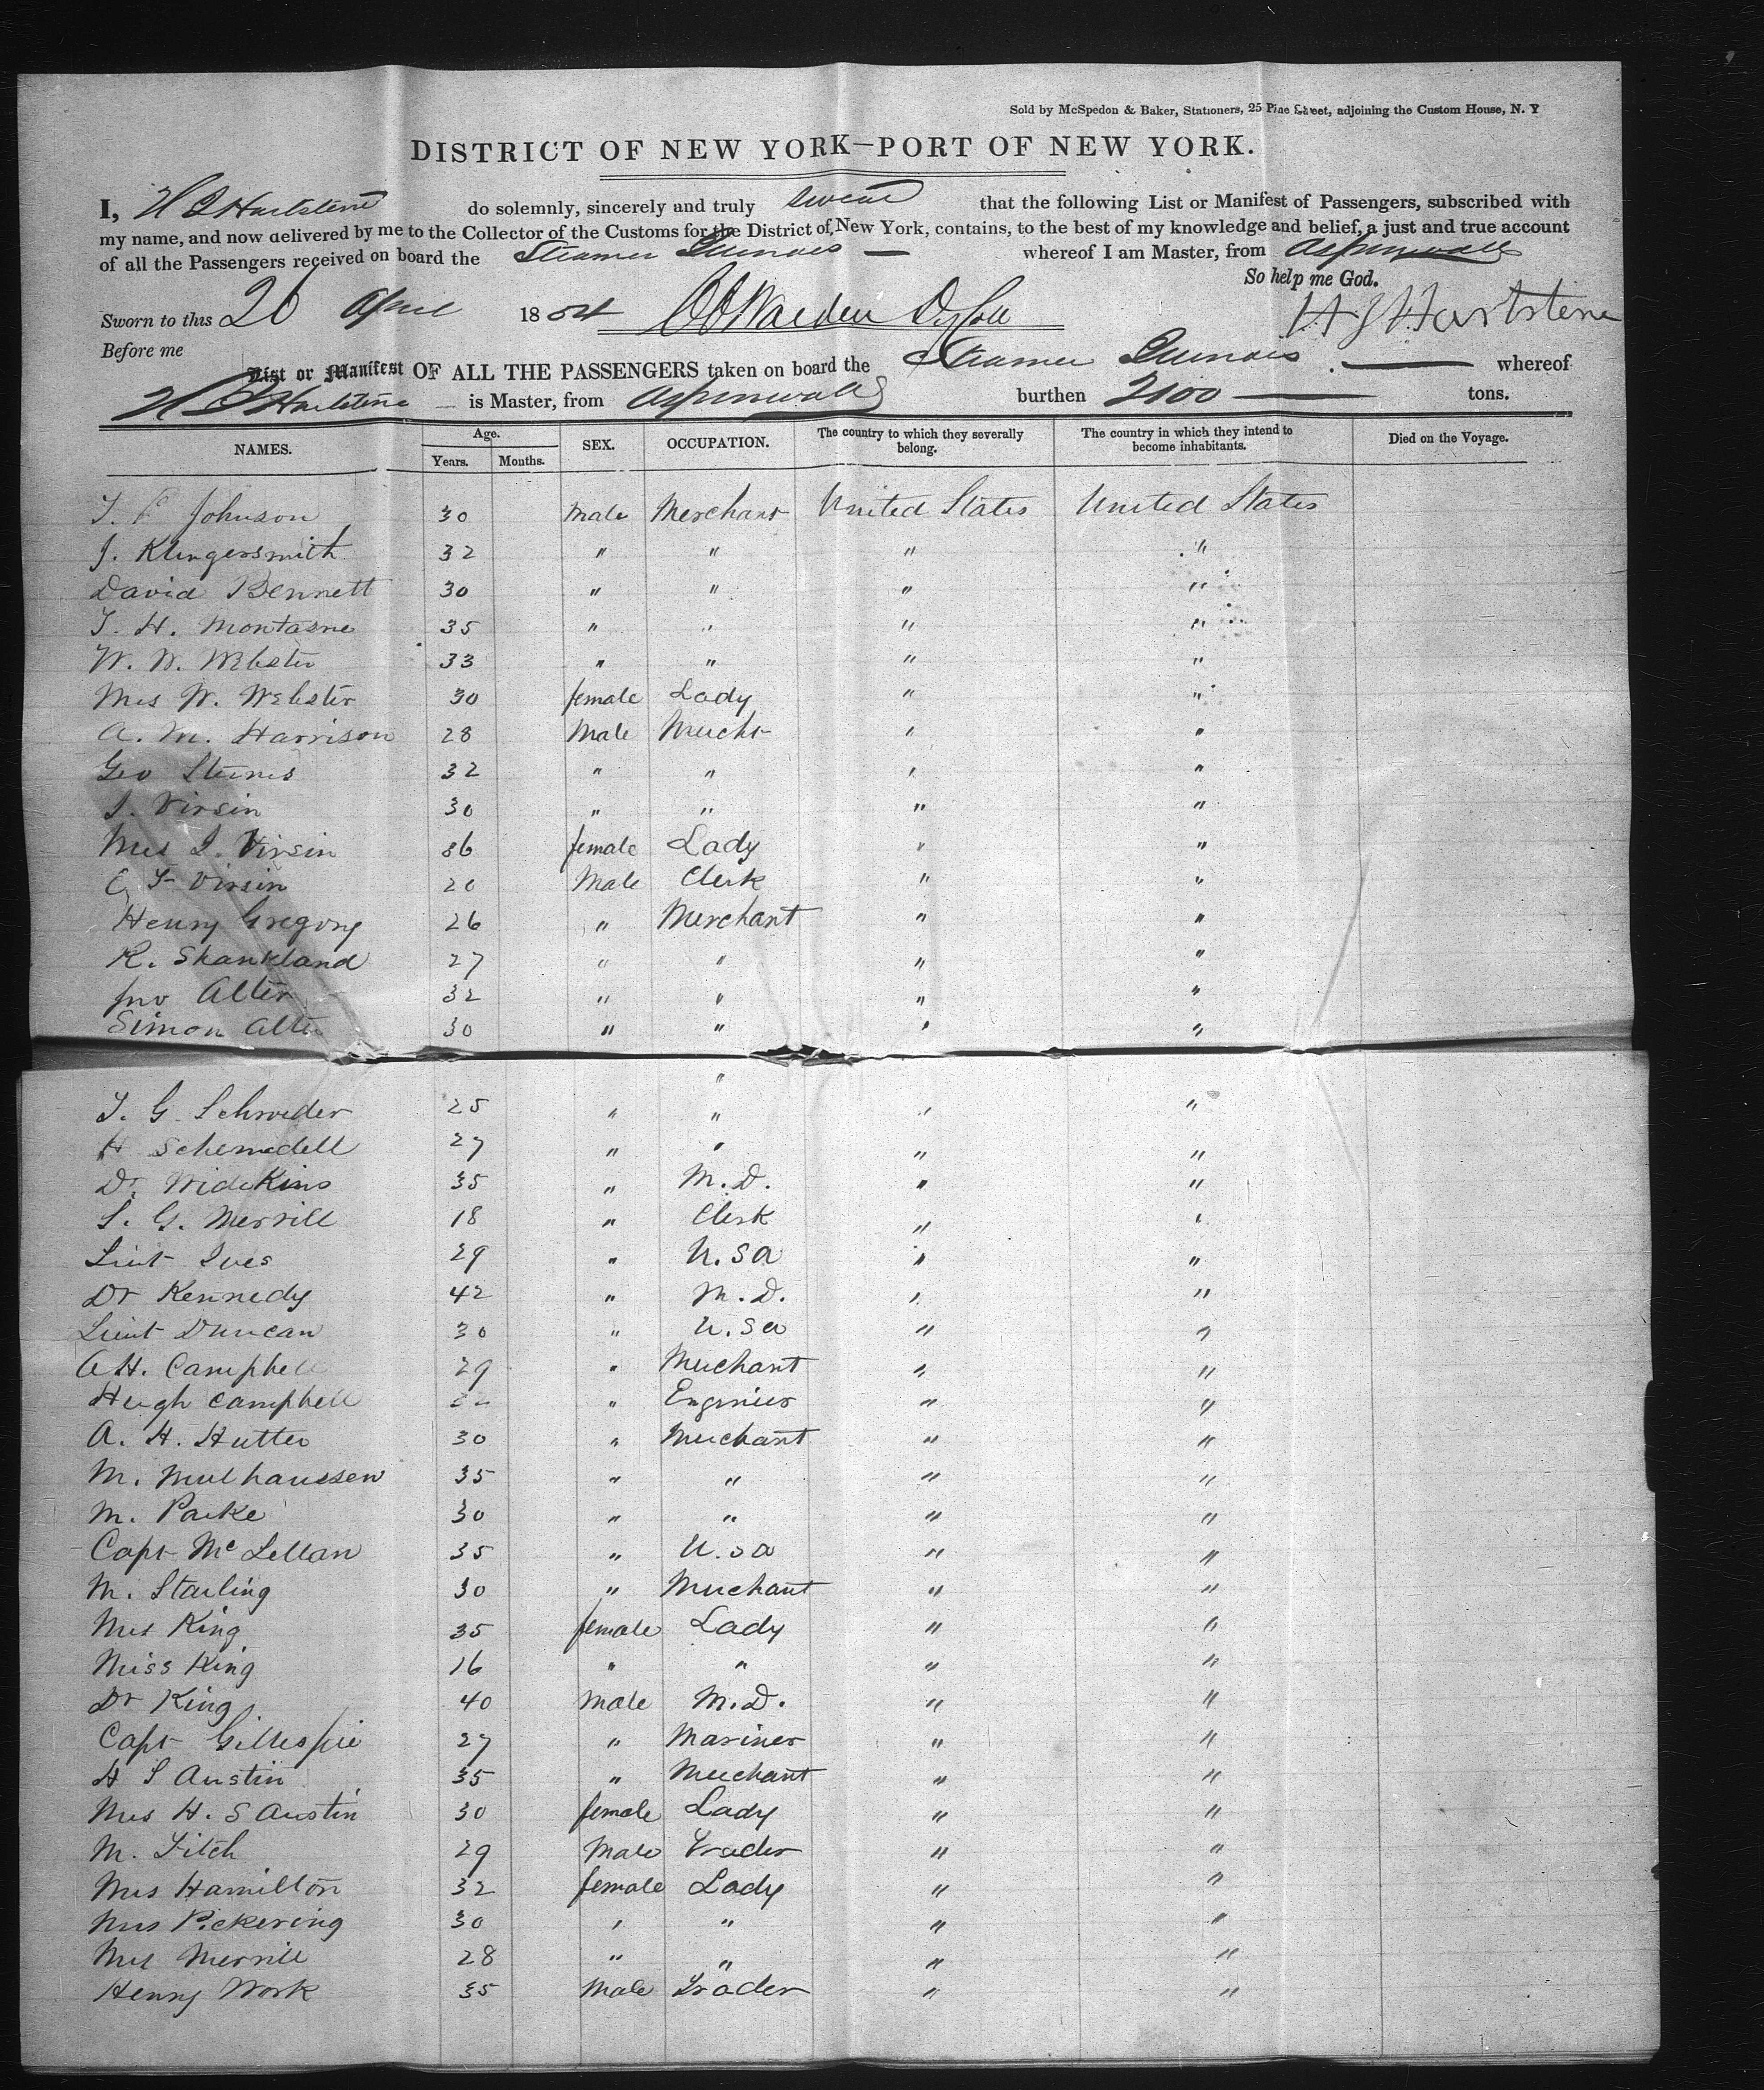 Sold by McSpedon & Baker, Stationers, 25 Pine Street, adjoining the Custom House, N. Y
DISTRICT OF NEW YORK—PORT OF NEW YORK.
I, H J Hartstene do solemnly, sincerely and truly swear that the following List or Manifest of Passengers, subscribed with
my name, and now delivered by me to the Collector of the Customs for the District of New York, contains, to the best of my knowledge and belief, a just and true account
of all the Passengers received on board the Steamer Illinois — whereof I am Master, from Aspinwall
So help me God.
Sworn to this 26 April 1854 Dy Coll H J Hartstene
Before me
List or Manifest OF ALL THE PASSENGERS taken on board the Steamer Illinois — whereof
H J Hartstene — is Master, from Aspinwall burthen 2100 — tons.
NAMES. Age. SEX. OCCUPATION. The country to which they severally belong. The country in which they intend to become inhabitants. Died on the Voyage.
Years. Months.
Johnson 30 Male Merchant United States United States
J. Klingersmith 32 " " " "
David Bennett 30 " " " "
T. H. Montasne 35 " " " "
W. W. Webster 33 " " " "
Mrs W. Webster 30 female Lady " "
A. M. Harrison 28 Male Mercht " "
Geo 32 " " " "
J. Virsin 30 " " " "
Mrs J. Virsin 36 female Lady " "
Virsin 20 Male Clerk " "
Henry Gregory 26 " Merchant " "
R. Shankland 27 " " " "
Jno Alter 32 " " " "
Simon Alter 30 " " " "
"
T. G. Schroeder 25 " " " "
H 27 " " " "
Dr. 35 " M.D. " "
S. G. Merrill 18 " Clerk " "
Lieut Ives 29 " U.S.A " "
Dr Kennedy 42 " M.D. " "
Lieut Duncan 30 " U.S.a " "
A H. Campbell 29 " Merchant " "
Hugh Campbell " Engineer " "
A. H. Hutter 30 " Merchant " "
M. Mulhaussen 35 " " " "
M. Parke 30 " " " "
Capt McLellan 35 " U.S.a " "
M. Starling 30 " Merchant " "
Mrs King 35 female Lady " "
Miss King 16 " " " "
Dr King 40 Male M.D. " "
Capt Gillespie 27 " Mariner " "
H S Austin 35 " Merchant " "
Mrs H. S Austin 30 female Lady " "
M. Fitch 29 Male Trader " "
Mrs Hamilton 32 female Lady " "
Mrs Pickering 30 " " " "
Mrs Merrill 28 " " " "
Henry Work 35 Male Trader " "